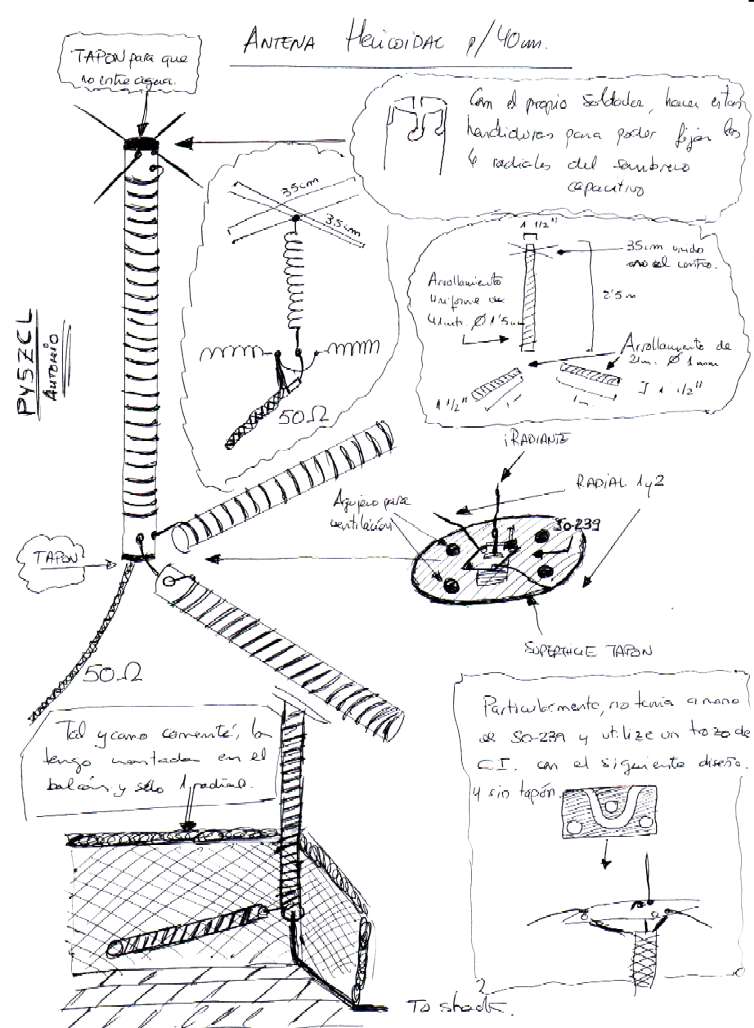 ANTENA Helicoidal p/40m.
TAPON para que
no entre agua.
Con el propio Soldador, hacer estas
hendiduras para poder fijar los
6 radiales del sombrero
capacitivo
35cm
35cm
50Ω
1 1/2"
35cm unido
con el centro.
2'5m
Arrollamiento
uniforme de
41mts Ø 1'5mm
Arrollamiento de
21m. Ø 1mm
1 1/2"
1m
1m
1 1/2"
PY5ZCL
ANTONIO
RADIANTE
RADIAL 1 y 2
Agujero para
ventilación
SO-239
TAPON
SUPERFICIE TAPON
50Ω
Tal y como comenté, la
tengo montada en el
balcón y sólo 1 radial.
Particularmente, no tenía a mano
el SO-239 y utilize un trozo de
C.I. con el siguiente diseño.
y sin tapón.
To shack.